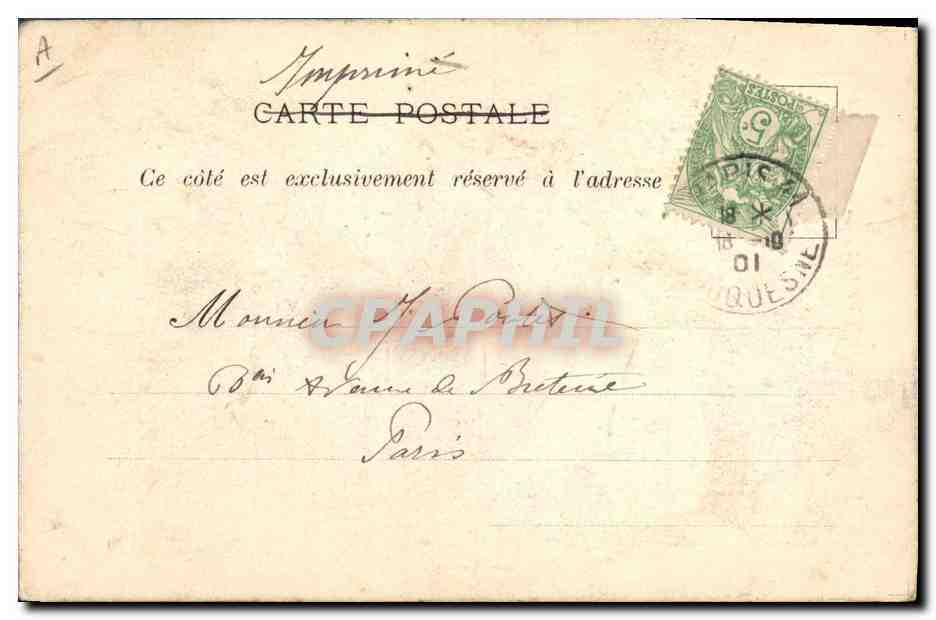 A
Imprimé
CARTE POSTALE
Ce côté est exclusivement réservé à l'adresse
POSTES
5c
PARIS
18 *
18 -10
01
DUQUESNE
CPAPHIL
Monsieur J.
Avenue de Breteuil
Paris